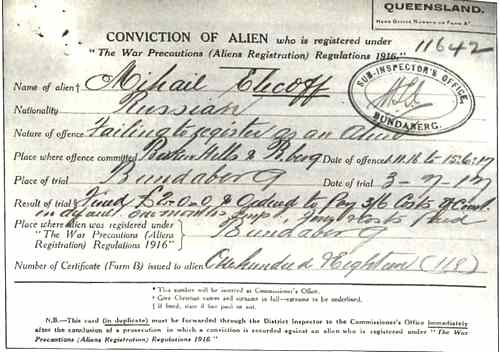 QUEENSLAND.
CONVICTION OF ALIEN who is registered under
"The War Precautions (Aliens Registration) Regulations 1916."
11642
SUB-INSPECTOR'S OFFICE,
BUNDABERG.
Name of alien† Mihail Elecoff
Nationality Russian
Nature of offence Failing to register as an Alien
Place where offence committed Broken Hills & B.berg Date of offence 11.16 to 15.6.17
Place of trial Bundaberg Date of trial 3-7-17
Result of trial Fined £2-0-0 & Ordered to Pay 3/6 Costs of Court
in default one month's imp't. Costs Paid
Place where alien was registered under
"The War Precautions (Aliens
Registration) Regulations 1916" Bundaberg
Number of Certificate (Form B) issued to alien One hundred & Eighteen (118)
* This number will be inserted at Commissioner's Office.
† Give Christian names and surname in full—surname to be underlined.
‡ If fined, state if fine paid or not.
N.B.—This card (in duplicate) must be forwarded through the District Inspector to the Commissioner's Office immediately
after the conclusion of a prosecution in which a conviction is recorded against an alien who is registered under "The War
Precautions (Aliens Registration) Regulations 1916."